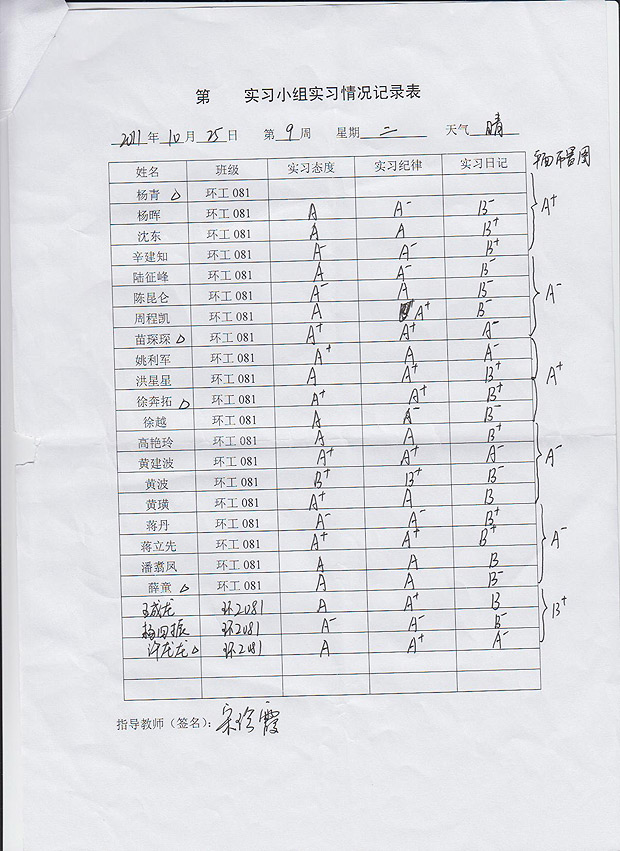 第 实习小组实习情况记录表
2011 年 10 月 25 日 第 9 周 星期 二 天气 晴
平面布置图
姓名 班级 实习态度 实习纪律 实习日记
杨青 △ 环工 081
杨晖 环工 081 A A⁻ B⁻
A⁺
沈东 环工 081 A A B⁺
辛建知 环工 081 A⁻ A⁻ B⁺
陆征峰 环工 081 A A⁻ B⁻
陈昆仑 环工 081 A⁻ A B⁻
A⁻
周程凯 环工 081 A A⁺ B⁻
苗琛琛 △ 环工 081 A⁺ A⁺ A⁻
姚利军 环工 081 A⁺ A A⁻
洪星星 环工 081 A A⁺ B⁺
A⁺
徐奔拓 △ 环工 081 A⁺ A⁺ B⁺
徐越 环工 081 A A⁻ B⁻
高艳玲 环工 081 A A B⁺
黄建波 环工 081 A⁺ A⁺ A⁻
A⁻
黄波 环工 081 B⁺ B⁺ B⁻
黄璜 环工 081 A⁺ A B
蒋丹 环工 081 A⁻ A⁻ B⁺
蒋立先 环工 081 A⁺ A⁺ B⁺
A⁻
潘翥凤 环工 081 A A B
薛童 △ 环工 081 A A B⁻
王成龙 环2081 A A⁺ B
B⁺
杨四振 环2081 A⁻ A⁻ B⁻
许龙龙 △ 环2081 A A⁺ A⁻
指导教师（签名）：宋 霞